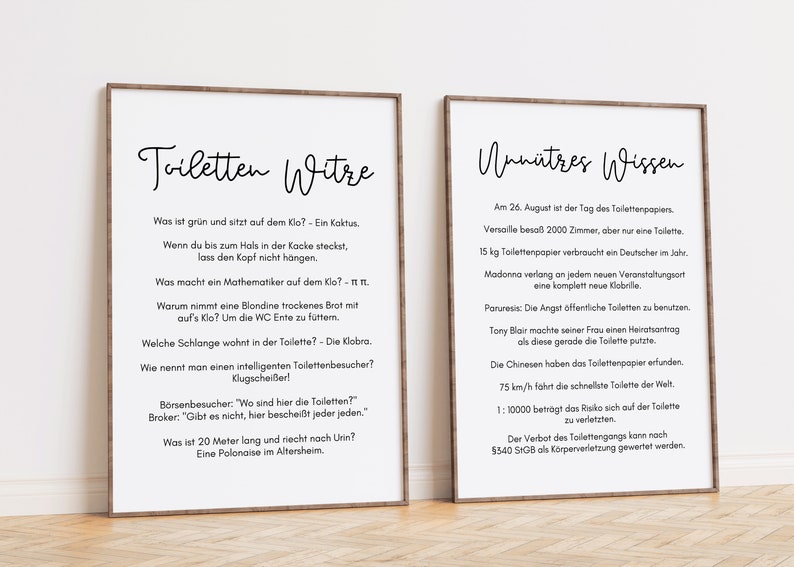 Toiletten Witze
Was ist grün und sitzt auf dem Klo? - Ein Kaktus.
Wenn du bis zum Hals in der Kacke steckst,
lass den Kopf nicht hängen.
Was macht ein Mathematiker auf dem Klo? - π π.
Warum nimmt eine Blondine trockenes Brot mit
auf's Klo? Um die WC Ente zu füttern.
Welche Schlange wohnt in der Toilette? - Die Klobra.
Wie nennt man einen intelligenten Toilettenbesucher?
Klugscheißer!
Börsenbesucher: "Wo sind hier die Toiletten?"
Broker: "Gibt es nicht, hier bescheißt jeder jeden."
Was ist 20 Meter lang und riecht nach Urin?
Eine Polonaise im Altersheim.
Unnützes Wissen
Am 26. August ist der Tag des Toilettenpapiers.
Versaille besaß 2000 Zimmer, aber nur eine Toilette.
15 kg Toilettenpapier verbraucht ein Deutscher im Jahr.
Madonna verlang an jedem neuen Veranstaltungsort
eine komplett neue Klobrille.
Paruresis: Die Angst öffentliche Toiletten zu benutzen.
Tony Blair machte seiner Frau einen Heiratsantrag
als diese gerade die Toilette putzte.
Die Chinesen haben das Toilettenpapier erfunden.
75 km/h fährt die schnellste Toilette der Welt.
1 : 10000 beträgt das Risiko sich auf der Toilette
zu verletzten.
Der Verbot des Toilettengangs kann nach
§340 StGB als Körperverletzung gewertet werden.